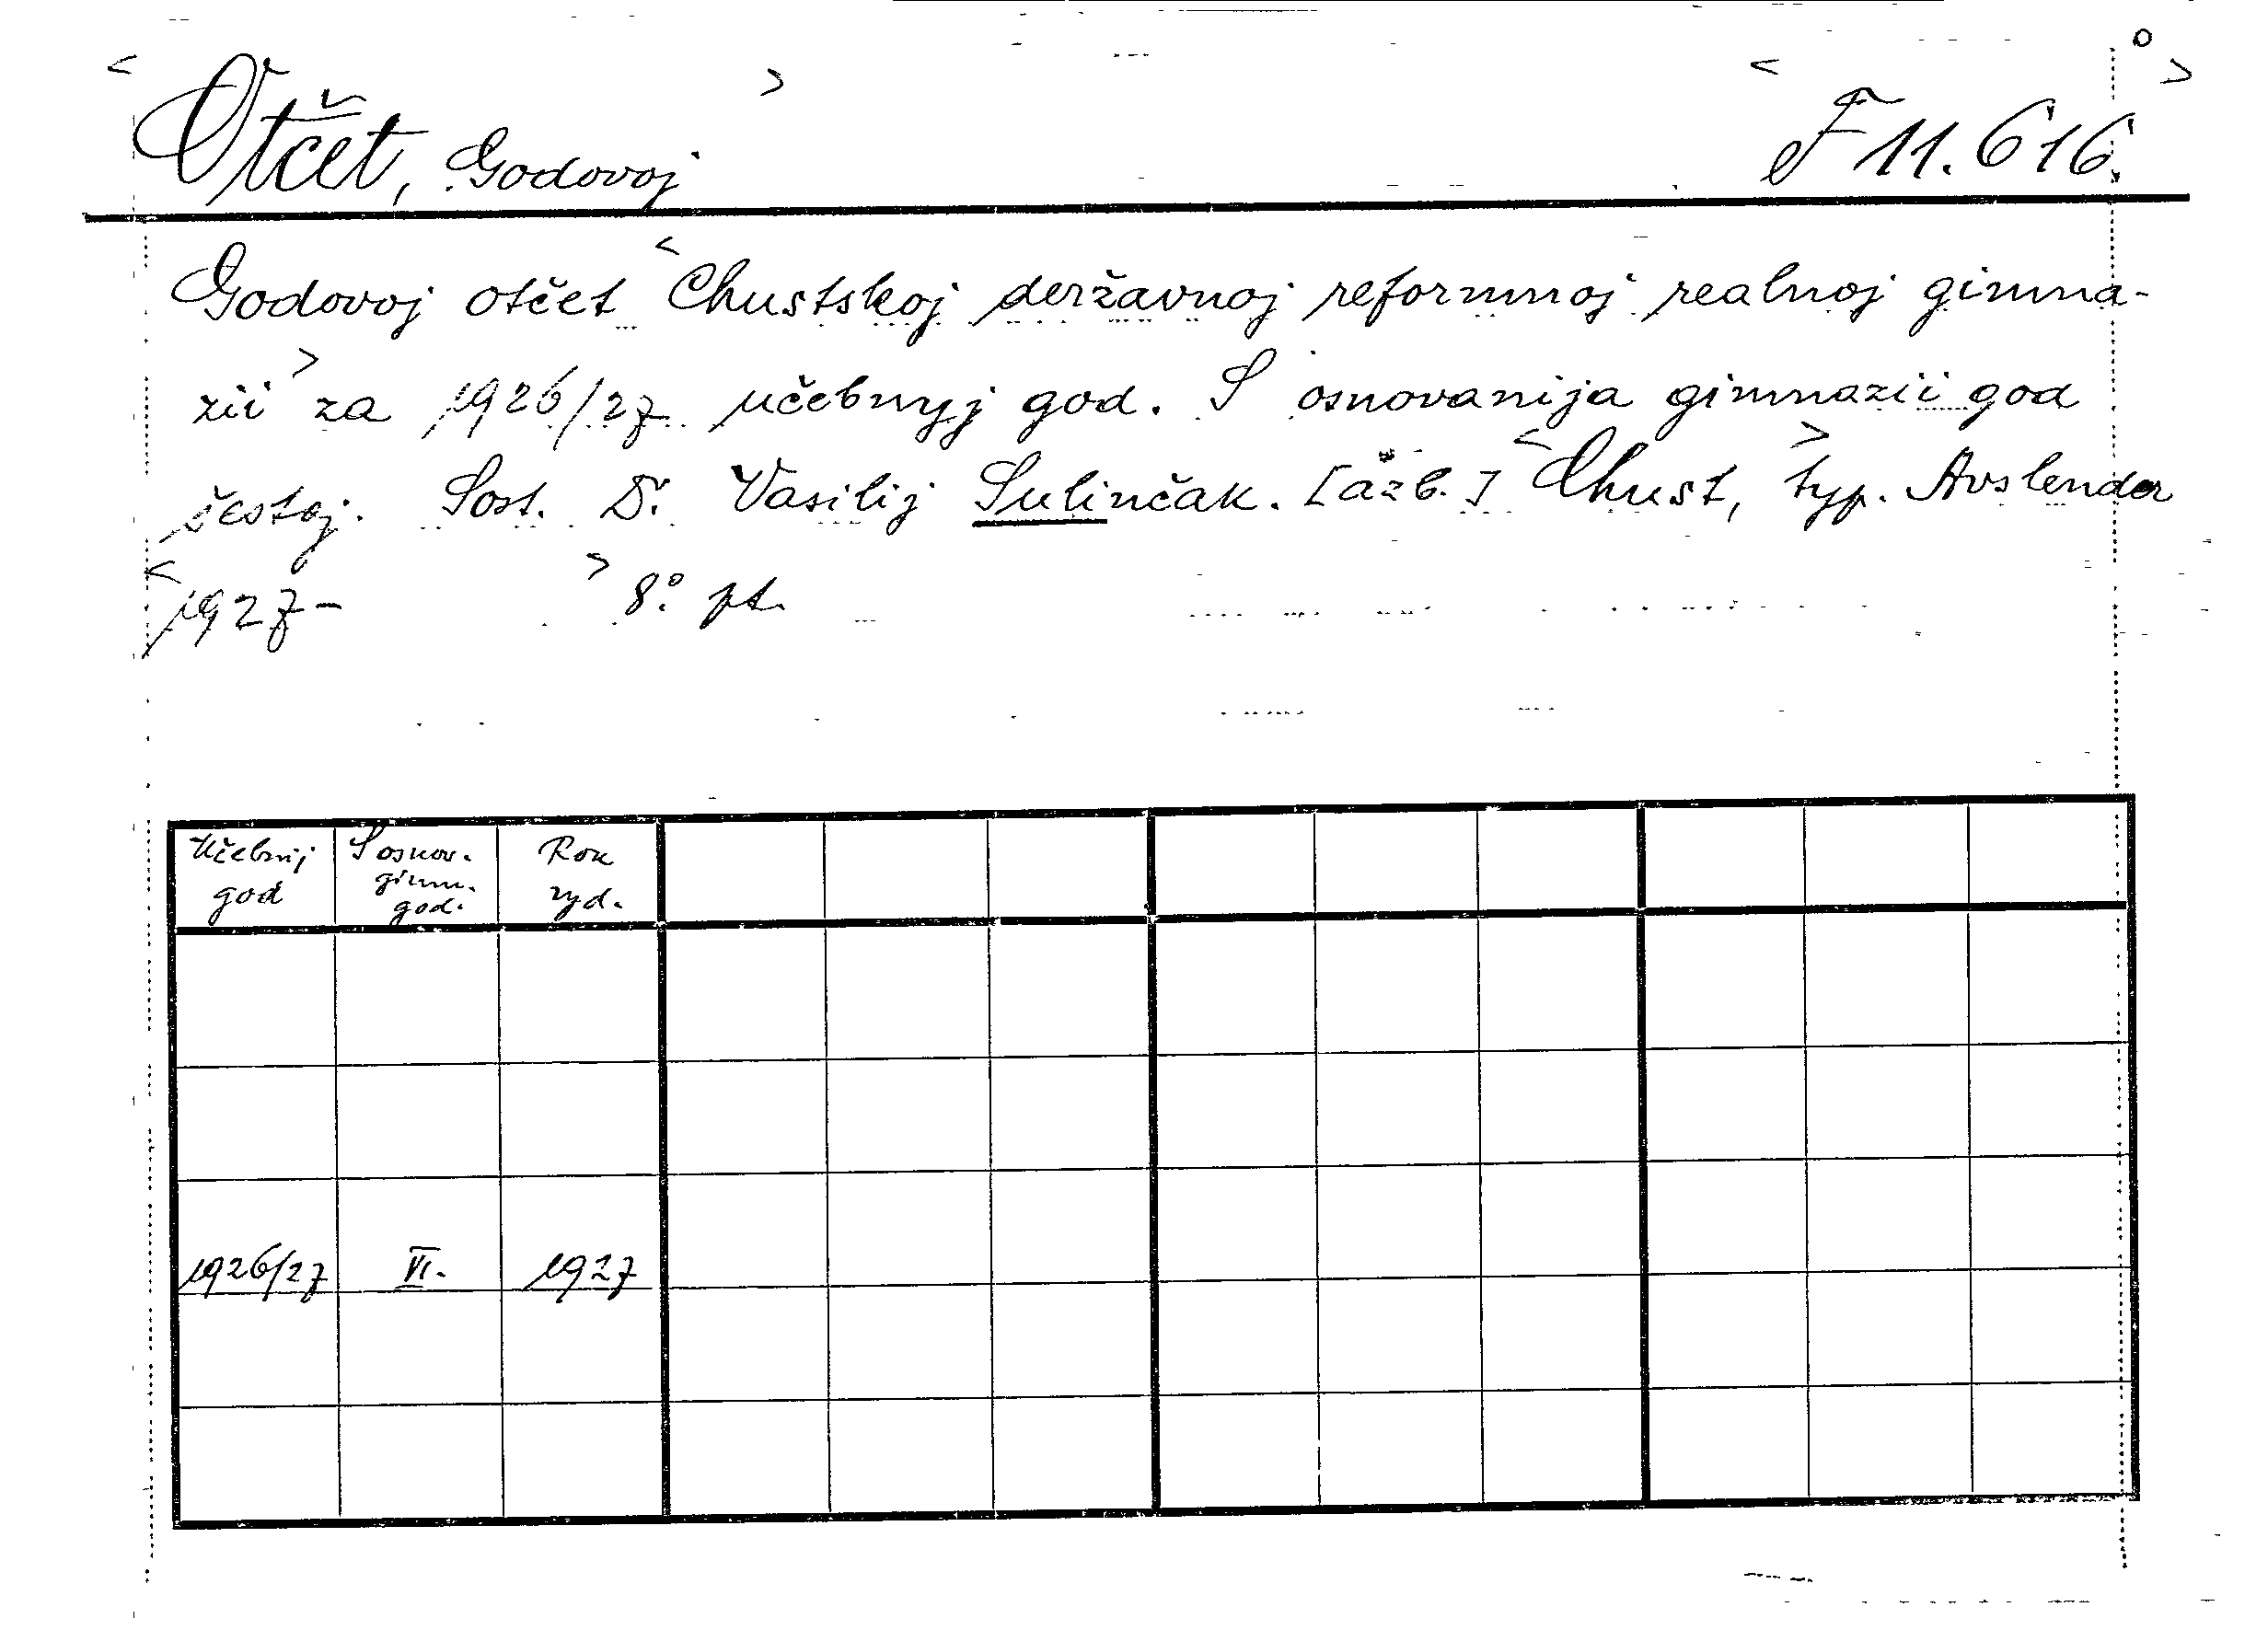 < Otčet, Godovoj > < F 11.616. >
Godovoj otčet < Chustskoj deržavnoj reformnoj realnoj gimna-
zii > za 1926/27 učebnyj god. S osnovanija gimnazii god
šestoj. Sost. Dr. Vasilij Sulinčak. [azb.] < Chust, > typ. Avslender
< 1927- > 8°. pt.
Učebnij god S osnov. gimn. god. Rok vyd.
1926/27 VI. 1927